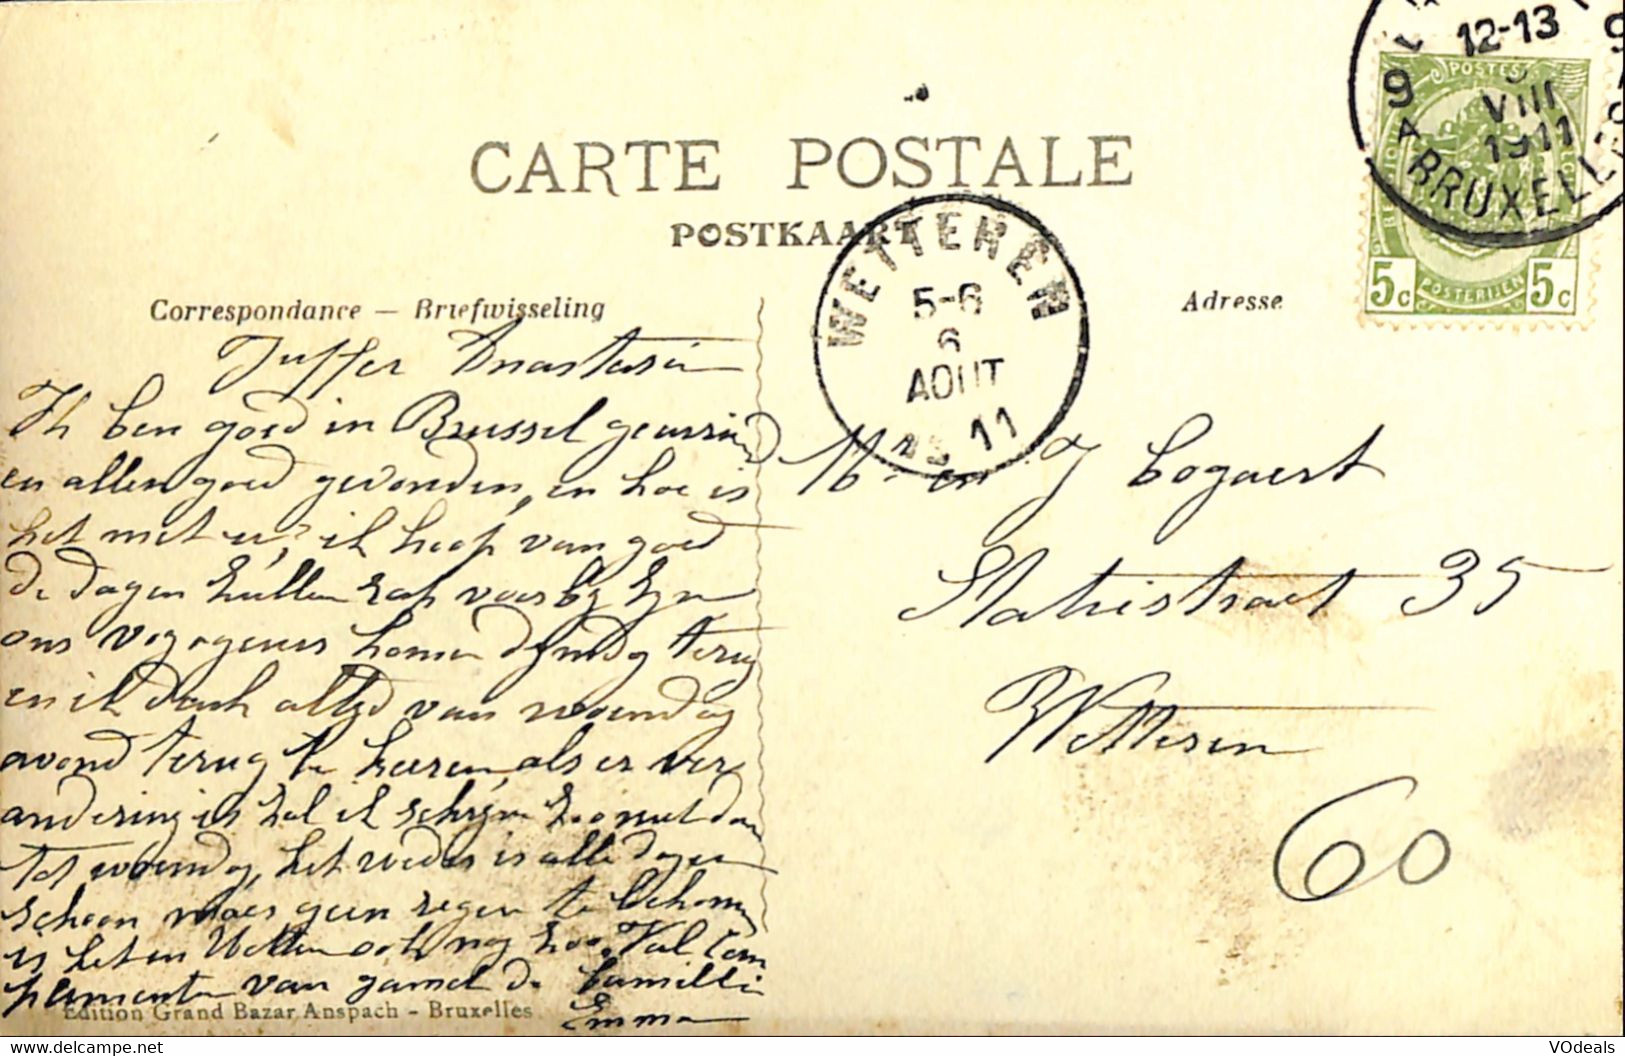 CARTE POSTALE
POSTKAART
Correspondance — Briefwisseling
Adresse
12-13
VIII
1911
9
A
BRUXELLES
POSTES
POSTERIJEN
5c
5c
WETTEREN
5-6
6
AOUT
11
Juffer Anastasia
Ik ben goed in Brussel
en allen goed gevonden, en hoe is
het met u, ik hoop van goed
de dagen zullen rap voorby zyn
ons komen dynsdag terug
en ik altyd van woensdag
avond terug te keeren, als er ver
andering is zal ik schryven zoo niet dan
tot woensdag, het weder is alle dagen
schoon maar geen regen te bekomen
is het in Wetteren ook nog zoo. Veel com
plimenten van gansch de familie
Emma
Mr en J Bogaert
Statiestraat 35
Wetteren
60
Edition Grand Bazar Anspach - Bruxelles
https://www.delcampe.net
VOdeals